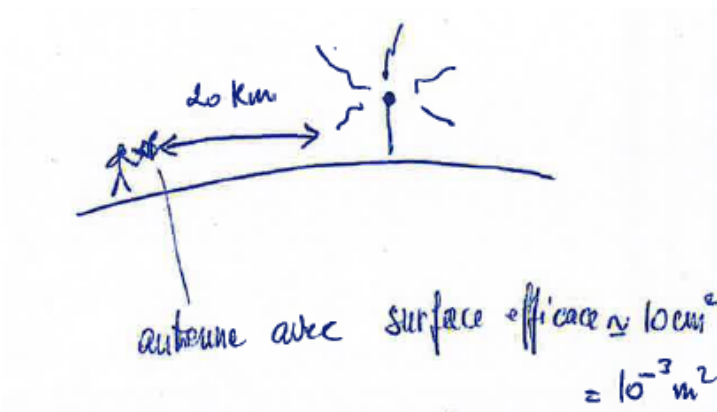 20 km
antenne avec surface efficace ≃ 10 cm²
= 10⁻³ m²